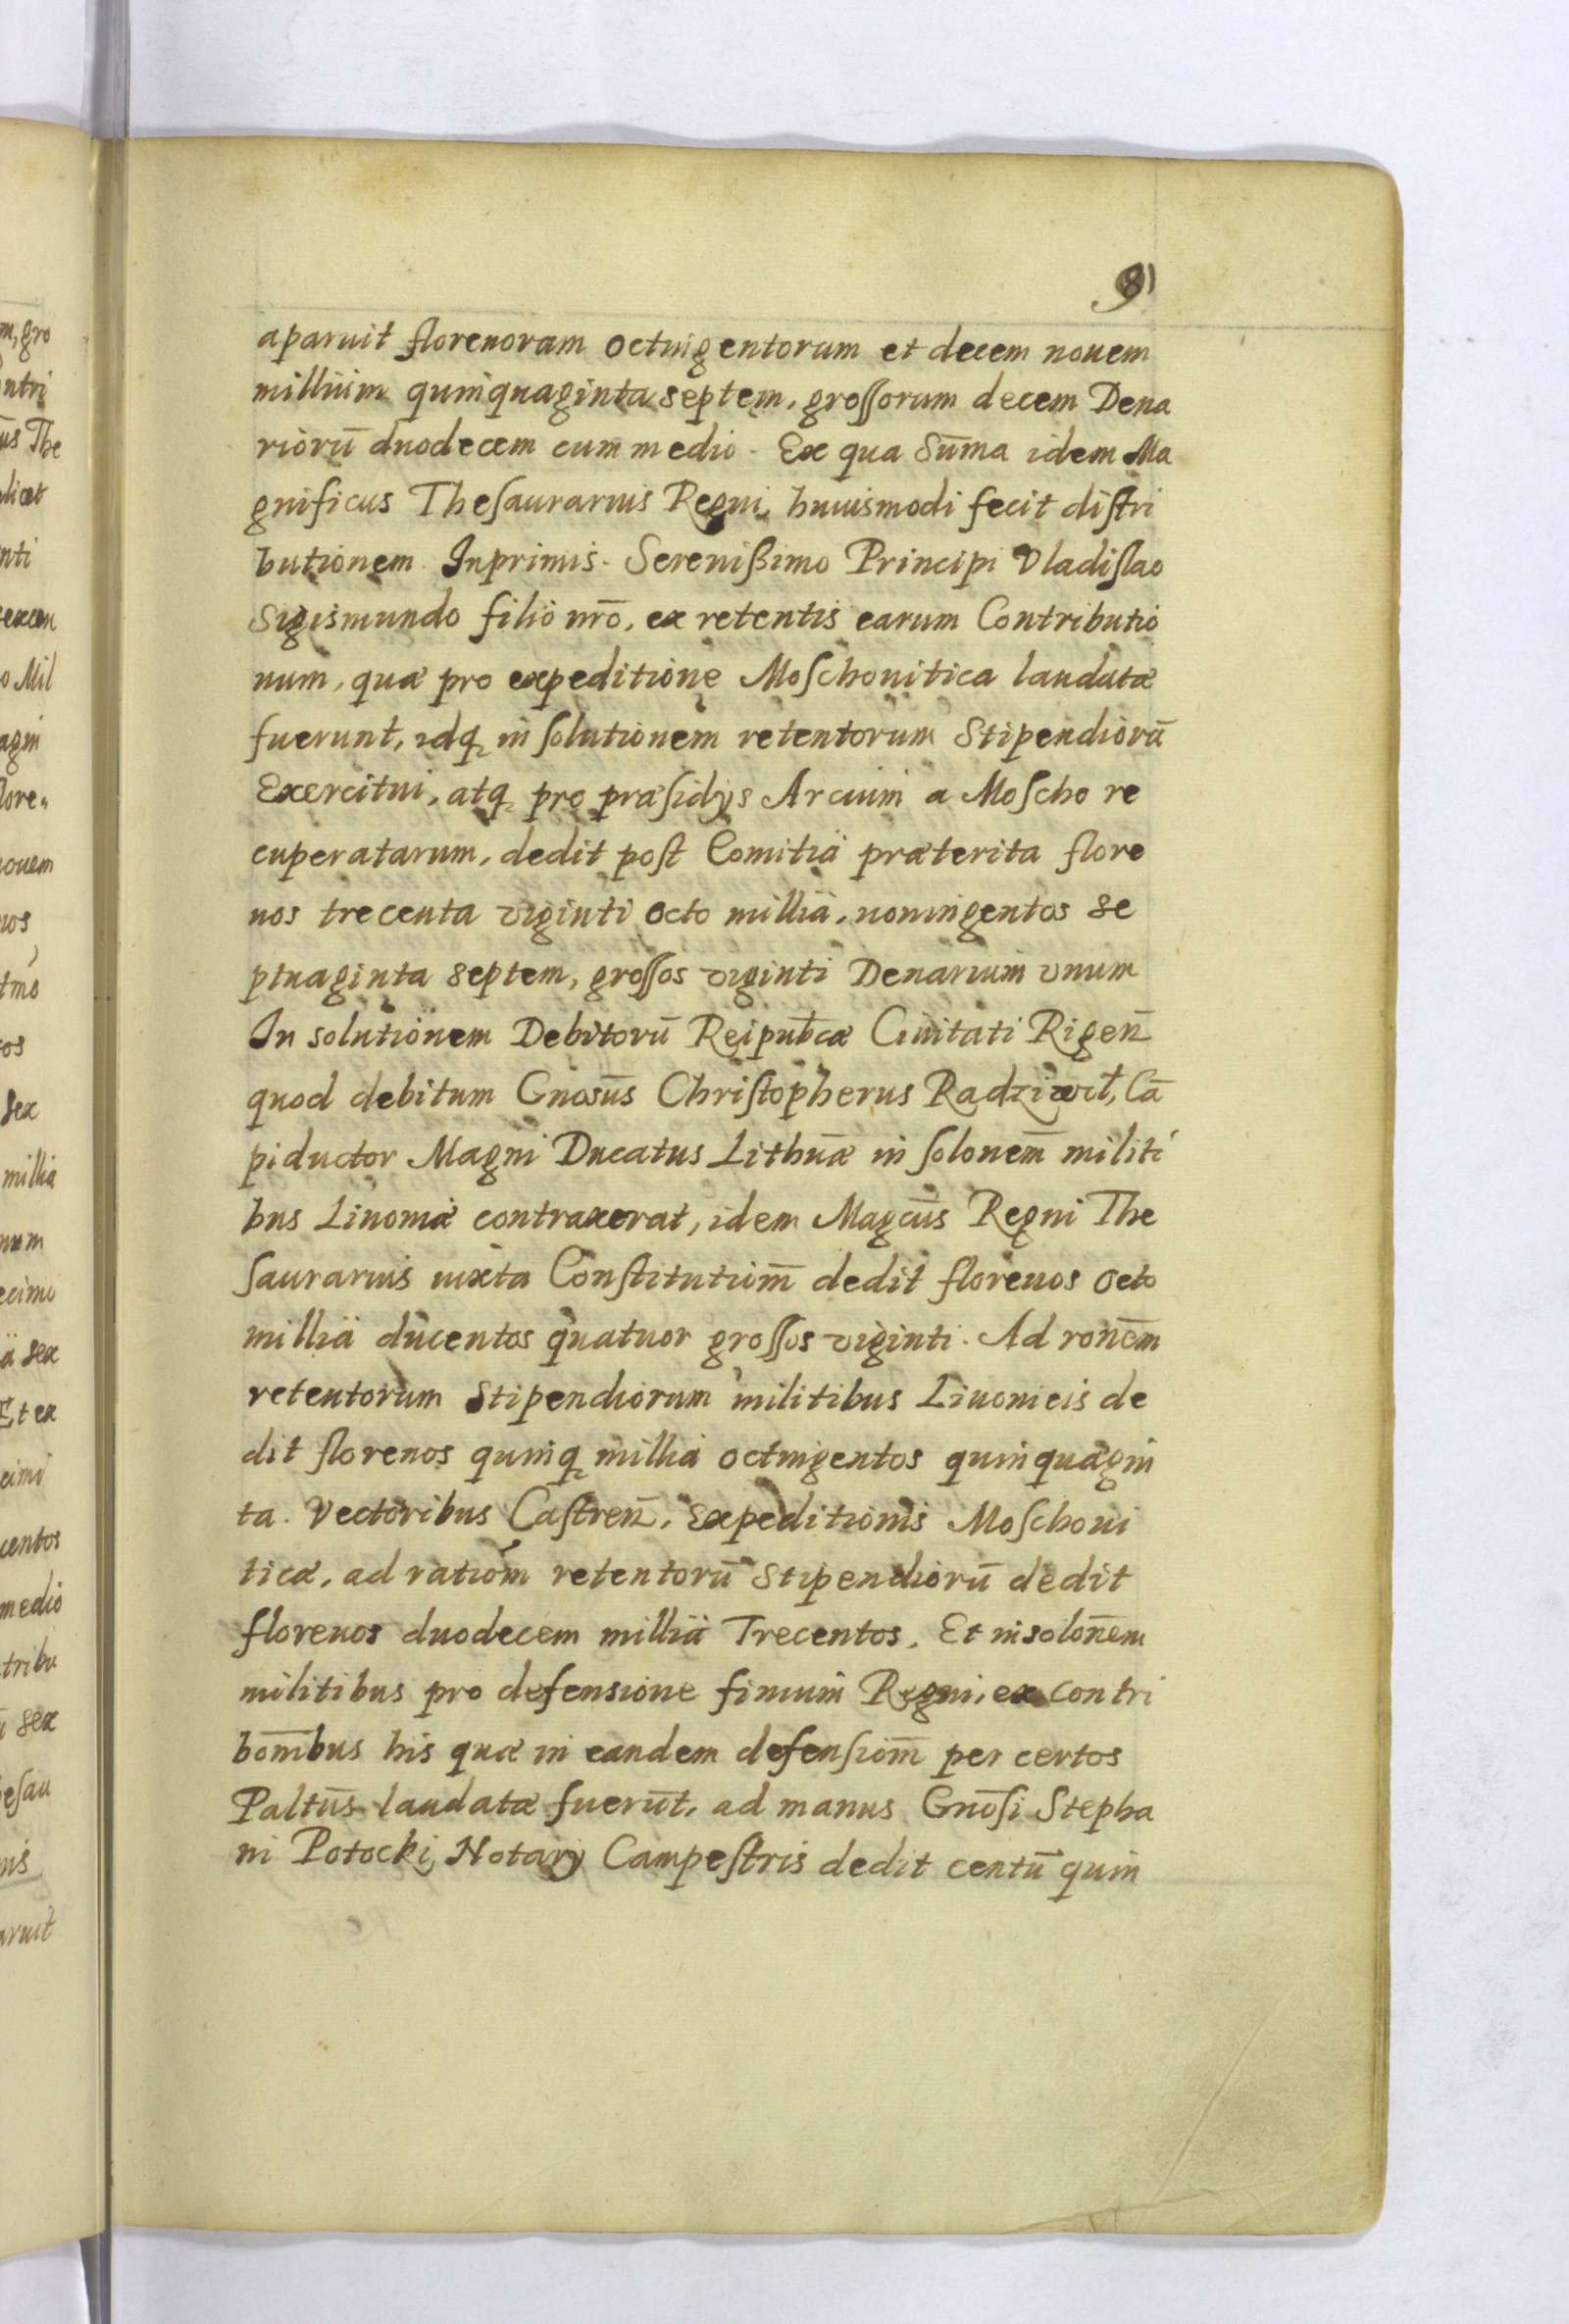 aparuit florenoram octuigentorum et decem nouem
milliüm quinquaginta septem, grossorum decem Dena
riorū duodecem cum medio. Ex qua Sūma idem Ma
gnificus Thesaurarius Regni, huiusmodi fecit distri
butionem. Inprimis. Serenißimo Principi Vladislao
Sigismundo filio nrō, ex retentis earum Contributio
num, quæ pro expeditione Moschouitica laudatæ
fuerunt, idq in solutionem retentorum Stipendiorū
Exercitui, atq pro præsidys Arcium a Moscho re
cuperatarum, dedit post Comitiä præterita flore
nos trecenta viginti octo milliä, noningentos se
ptuaginta septem, grossos viginti Denarium vnum
In solutionem Debitorū Reipub̄cæ Ciuitati Rigen̄
quod debitum Gnosūs Christopherus Radziwił, Cā
piductor Magni Ducatus Lithūæ in solonem̄ militi
bus Liuoniæ contraxerat, idem Magcūs Regni The
saurarius iuxta Constitutiom̄ dedit florenos octo
milliä ducentos quatuor grossos viginti. Ad ronēm
retentorum Stipendiorum militibus Liuonicis de
dit florenos quinq millia octingentos quinquagin
ta. Vectoribus Castren̄. Expeditionis Moschoui
ticæ, ad ratiom̄ retentorū Stipendiorū dedit
florenos duodecem milliä Trecentos. Et in solon̄em
militibus pro defensione finium Regni, ex contri
bom̄bus his quæ in eandem defensiom̄ per certos
Paltūs laudatæ fuerūt, ad manus Gnōsi Stepha
ni Potocki, Notarÿ Campestris dedit centū quin